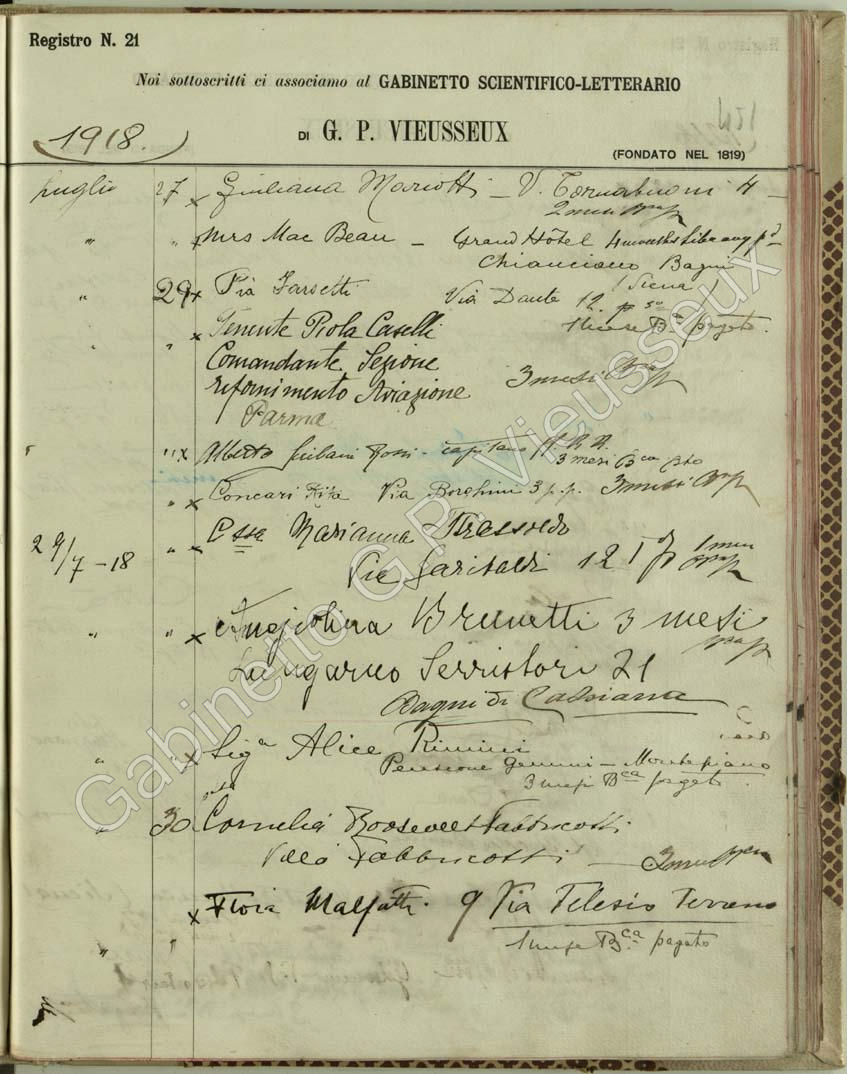 Registro N. 21
Noi sottoscritti ci associamo al GABINETTO SCIENTIFICO-LETTERARIO
1918.
DI G. P. VIEUSSEUX
(FONDATO NEL 1819)
Luglio 27 x Giuliana Mariotti – V. Tornabuoni 4 –
2 mesi
" " x Mrs Mac Bean – Grand Hôtel 4 months Library pd
Chianciano Bagni
(Siena)
" 29 x Pia Farsetti Via Dante 12 p so
1 mese Bca pagato.
" x Tenente Piola Caselli
Comandante Sezione
rifornimento Aviazione 3 mesi
Parma
" " x Alberto Rossi - capitano
3 mesi Bca
" x Concari Rita Via Borghini 3 p.p. 3 mesi
29/7 - 18 " x Cssa Marianna
Via Garibaldi 12 I p 1 mese
" " x Angiolina Brunetti 3 mesi
Lungarno Serristori 21
Bagni di Casciana
" " x Sigª Alice Rimini
Pensione Gemini – Montepiano
3 mesi Bca pagati.
" 30 Cornelia Roosevelt Fabbricotti
Villa Fabbricotti – 3 mesi
x Flora Malfatti. 9 Via Telesio Terreno
" " 1 mese Bca pagato
Gabinetto G.P. Vieusseux